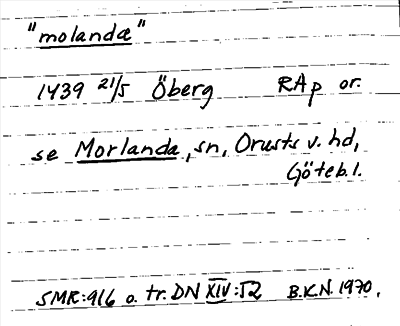 "molandæ"
1439 21/5 Öberg RAp or.
se Morlanda, sn, Orusts v. hd,
Göteb. l.
SMR:916 o. tr. DN XIV:52 B.K.N. 1970.